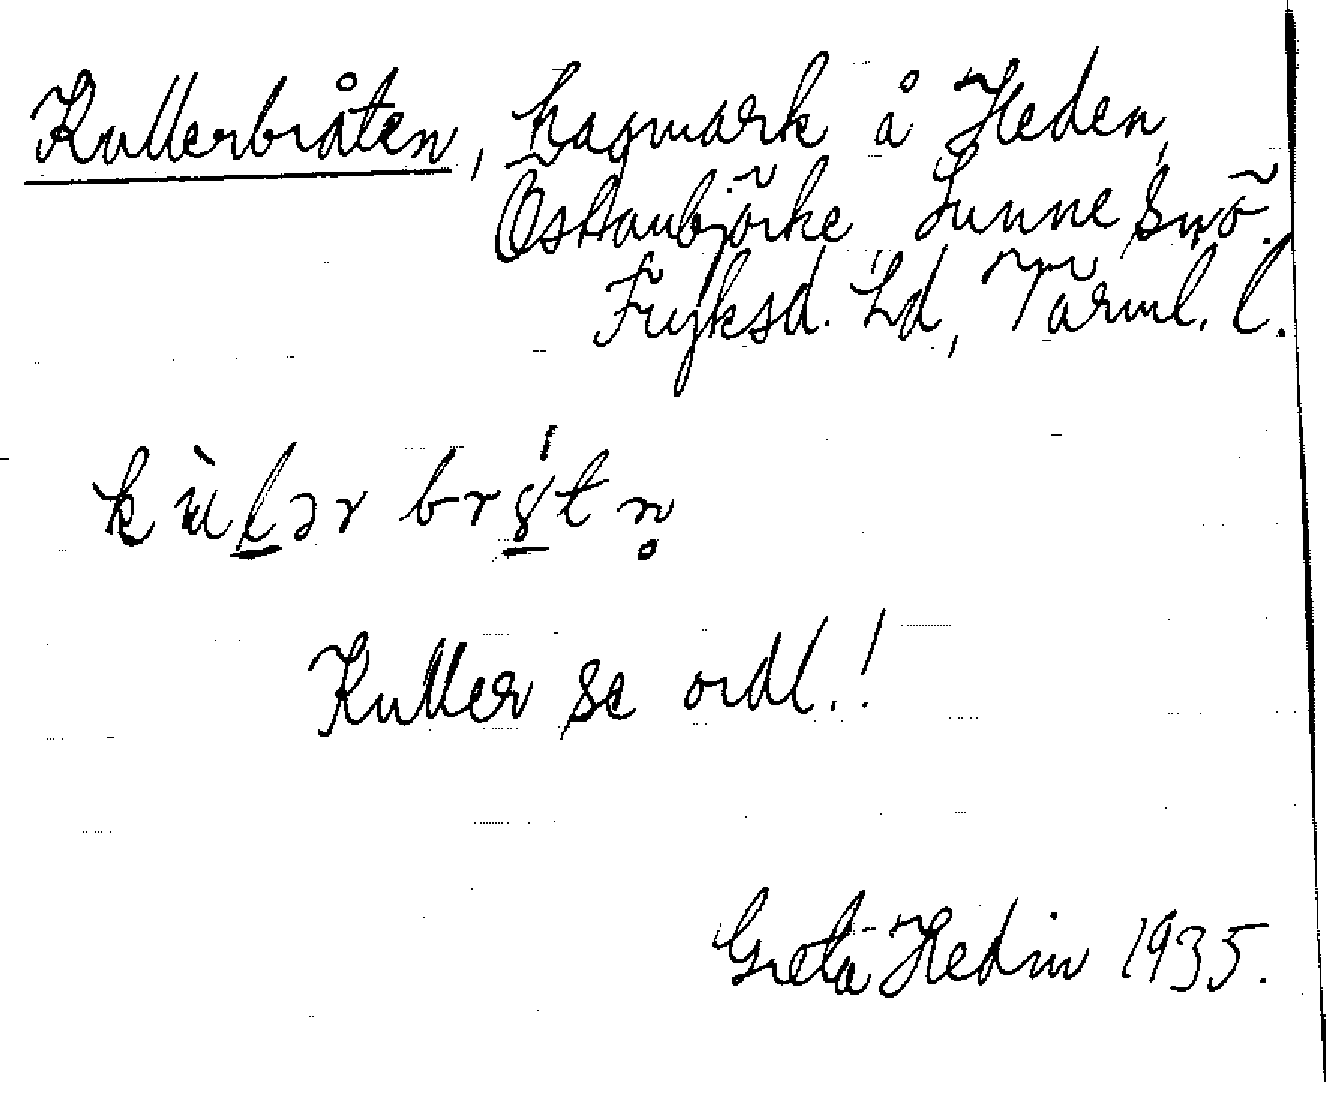 Kullerbråten, hagmark å Heden,
Östanbjörke Sunne snö.
Fryksd. hd, Värml. l.
kùlər brýtn̥
Kuller se ordl.!
Greta Hedin 1935.